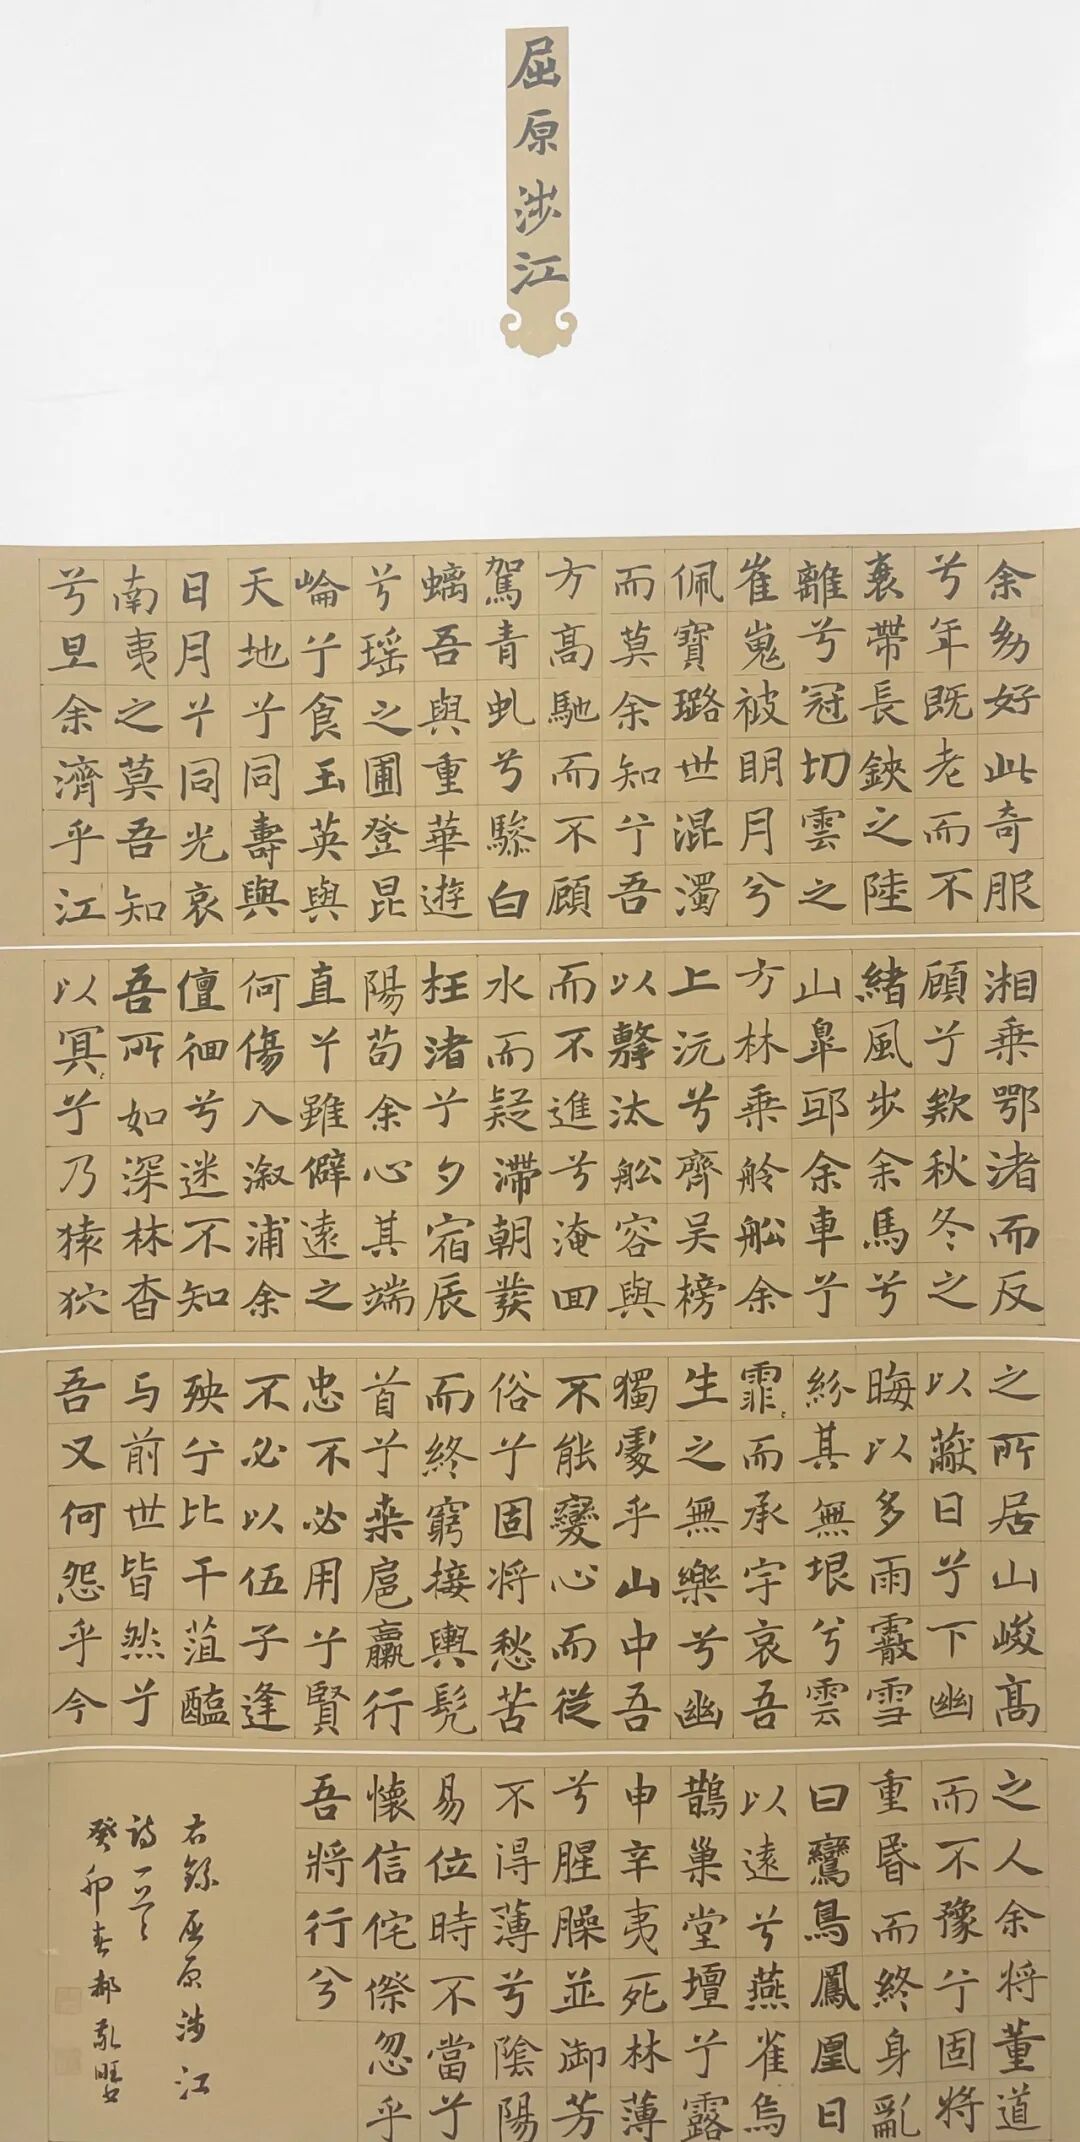 屈原涉江
余幼好此奇服
兮年既老而不
衰帶長鋏之陸
離兮冠切雲之
崔嵬被明月兮
佩寶璐世混濁
而莫余知兮吾
方高馳而不顧
駕青虬兮驂白
螭吾與重華遊
兮瑶之圃登昆
崘兮食玉英與
天地兮同壽與
日月兮同光哀
南夷之莫吾知
兮旦余濟乎江
湘乘鄂渚而反
顧兮欸秋冬之
緒風步余馬兮
山皐邸余車兮
方林乘舲船余
上沅兮齊吳榜
以擊汰船容與
而不進兮淹回
水而疑滯朝發
枉渚兮夕宿辰
陽苟余心其端
直兮雖僻遠之
何傷入溆浦余
儃佪兮迷不知
吾所如深林杳
以冥兮乃猿狖
之所居山峻高
以蔽日兮下幽
晦以多雨霰雪
紛其無垠兮雲
霏而承宇哀吾
生之無樂兮幽
獨處乎山中吾
不能變心而從
俗兮固將愁苦
而終窮接輿髡
首兮桒扈臝行
忠不必用兮賢
不必以伍子逢
殃兮比干菹醢
与前世皆然兮
吾又何怨乎今
之人余将董道
而不豫兮固將
重昏而終身亂
曰鸞鳥鳳凰日
以遠兮燕雀烏
鵲巢堂壇兮露
申辛夷死林薄
兮腥臊並御芳
不得薄兮陰陽
易位時不當兮
懷信侘傺忽乎
吾將行兮
右錄屈原涉江
詩一首
癸卯春郝敬